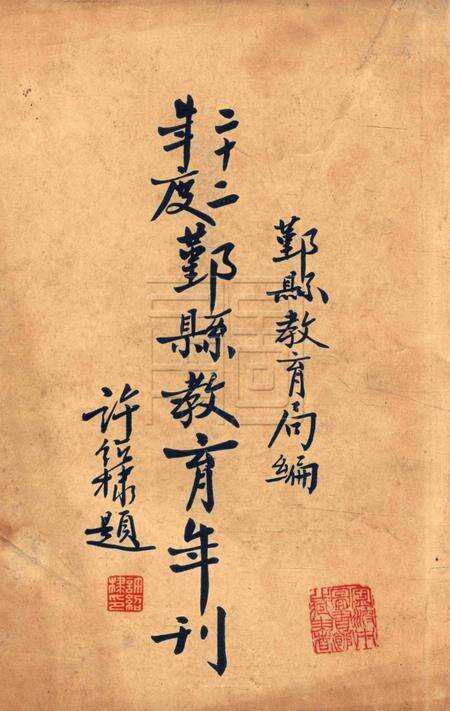 鄞縣教育局編
二十二
年度鄞縣教育年刊
許紹棣題
許紹棣印